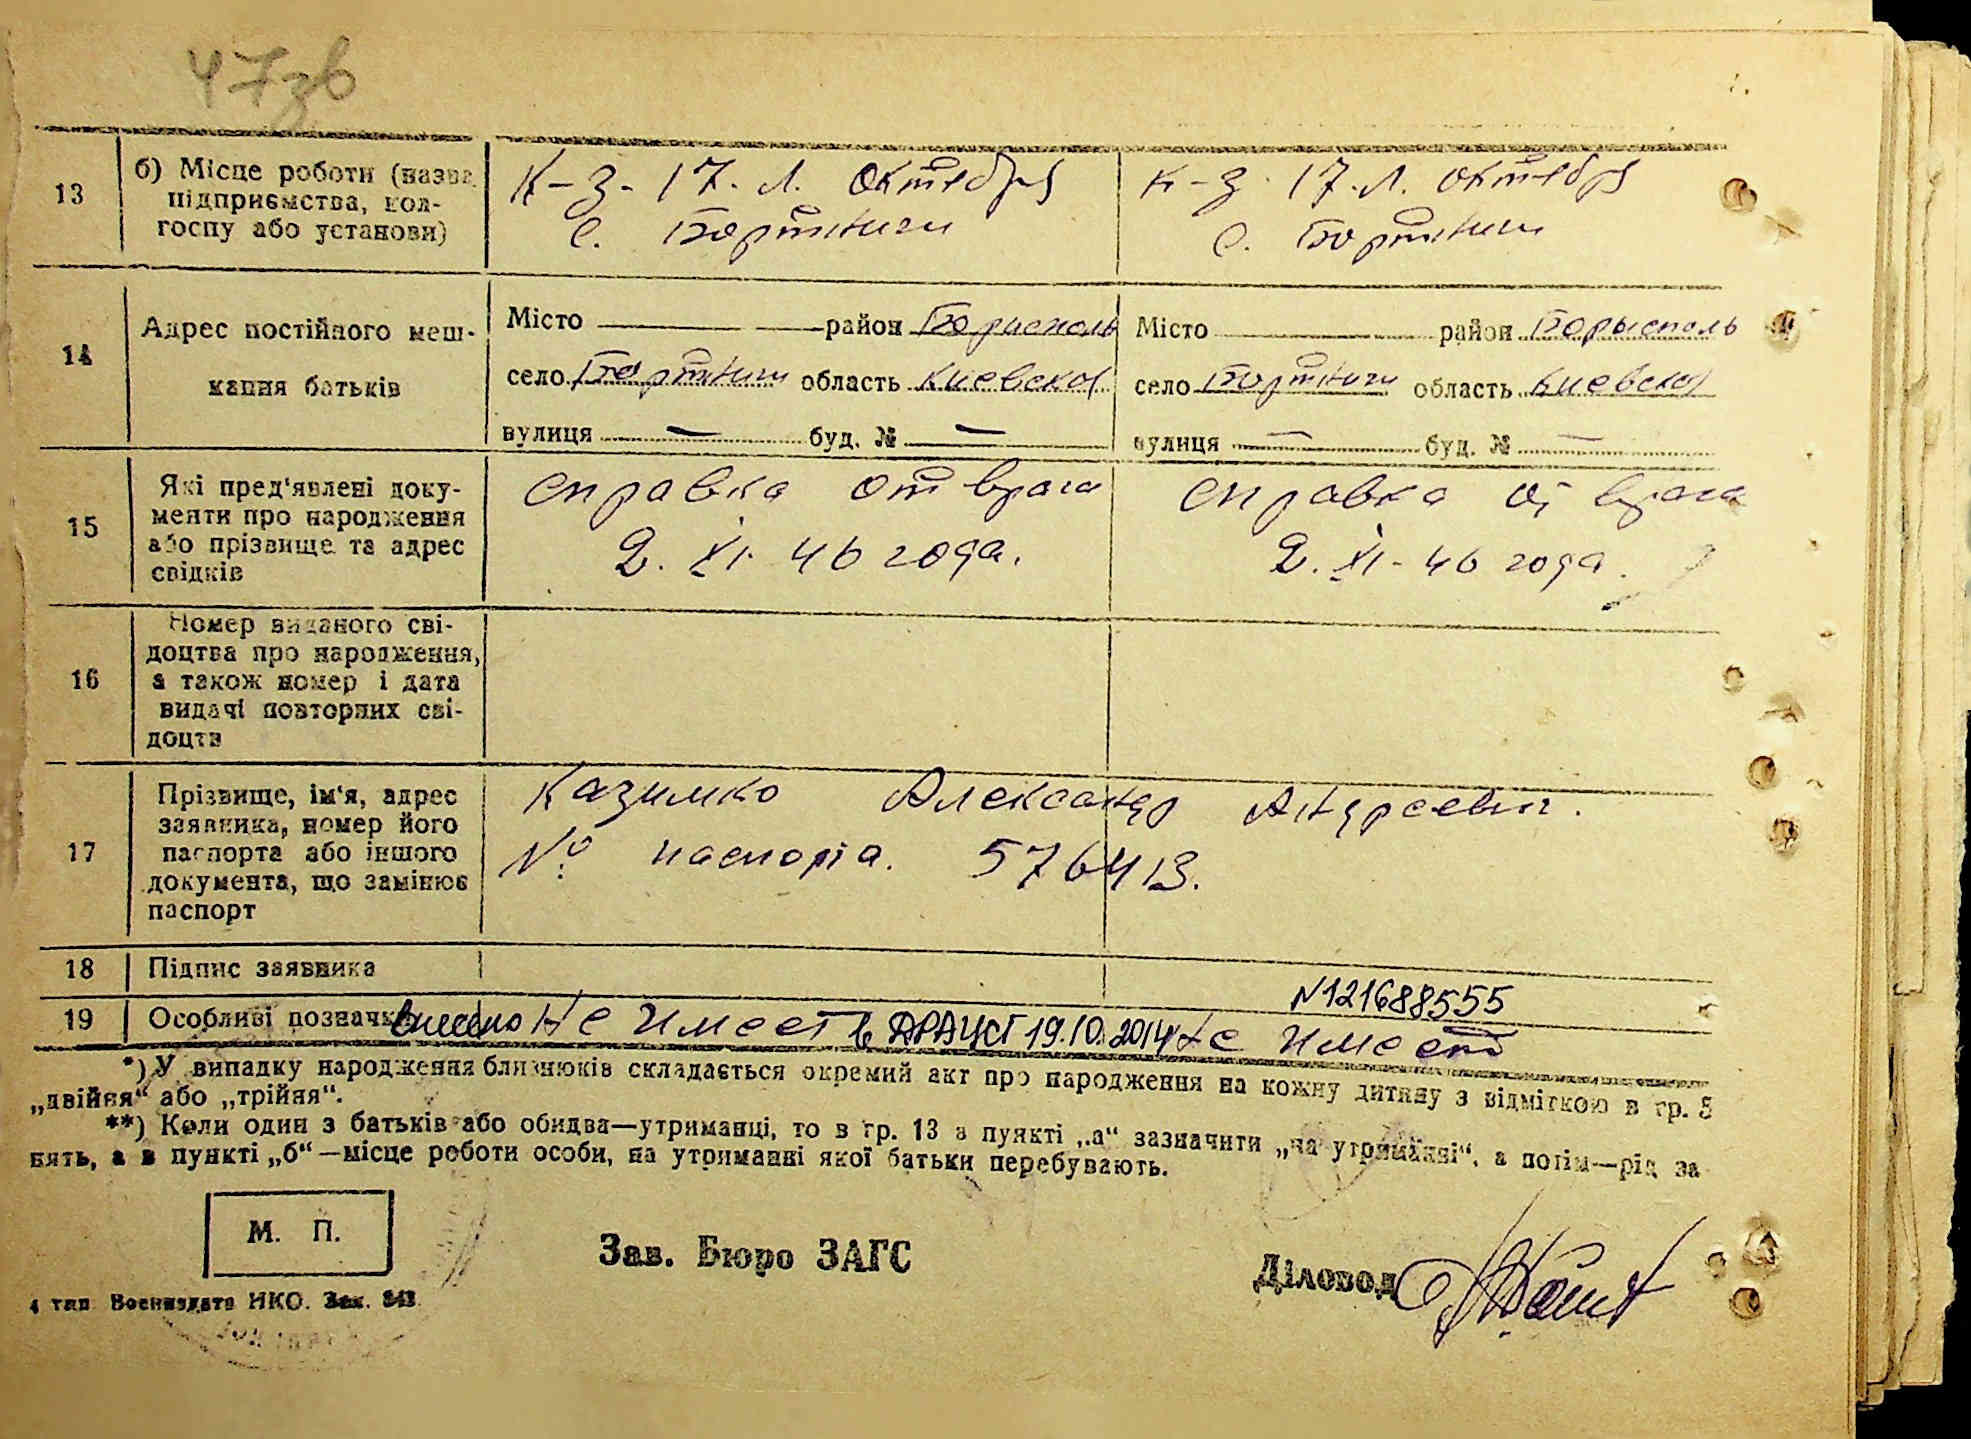 47зв
13
б) Місце роботи (назва
підприємства, кол-
госпу або установи)
К-з- 17. Л. Октября
с. Бортничи
К-з. 17. Л. Октября
с. Бортничи
14
Адрес постійного меш-
кання батьків
Місто район Борисполь
село Бортничи область Киевская
вулиця — буд. № —
Місто район Борысполь
село Бортничи область Киевская
вулиця — буд. № —
15
Які пред'явлені доку-
менти про народження
або прізвище та адрес
свідків
справка от врача
2. XI. 46 года.
справка от врача
2. XI- 46 года.
16
Номер виданого сві-
доцтва про народження,
а також номер і дата
видачі повторних сві-
доцтв
17
Прізвище, ім'я, адрес
заявника, номер його
паспорта або іншого
документа, що замінює
паспорт
Казимко Александр Андреевич.
№ паспорта. 576413.
18
Підпис заявника
19
Особливі позначки
N121688555
внесено Не имеет в ДРАЦСГ 19.10.2014 Не имеет
*) У випадку народження близнюків складається окремий акт про народження на кожну дитину з відміткою в гр. 5
„двійня“ або „трійня“.
**) Коли один з батьків або обидва—утриманці, то в гр. 13 в пункті „а“ зазначити „на утриманні“, а потім—рід за
нять, а в пункті „б“—місце роботи особи, на утриманні якої батьки перебувають.
М. П.
Зав. Бюро ЗАГС
Діловод
4 тип. Воениздата НКО. Зак. 843